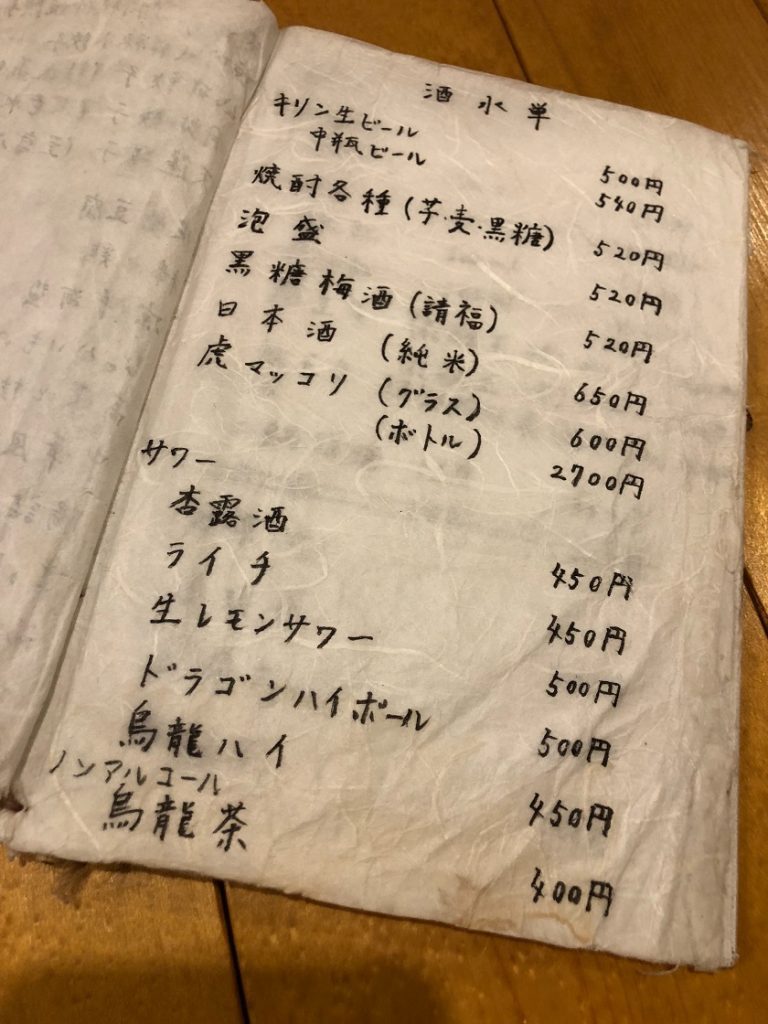 酒水単
キリン生ビール 500円
中瓶ビール 540円
焼酎各種(芋・麦・黒糖) 520円
泡盛 520円
黒糖梅酒(請福) 520円
日本酒 (純米) 650円
虎マッコリ (グラス) 600円
(ボトル) 2700円
サワー
杏露酒 450円
ライチ 450円
生レモンサワー 500円
ドラゴンハイボール 500円
烏龍ハイ 450円
ノンアルコール
烏龍茶 400円